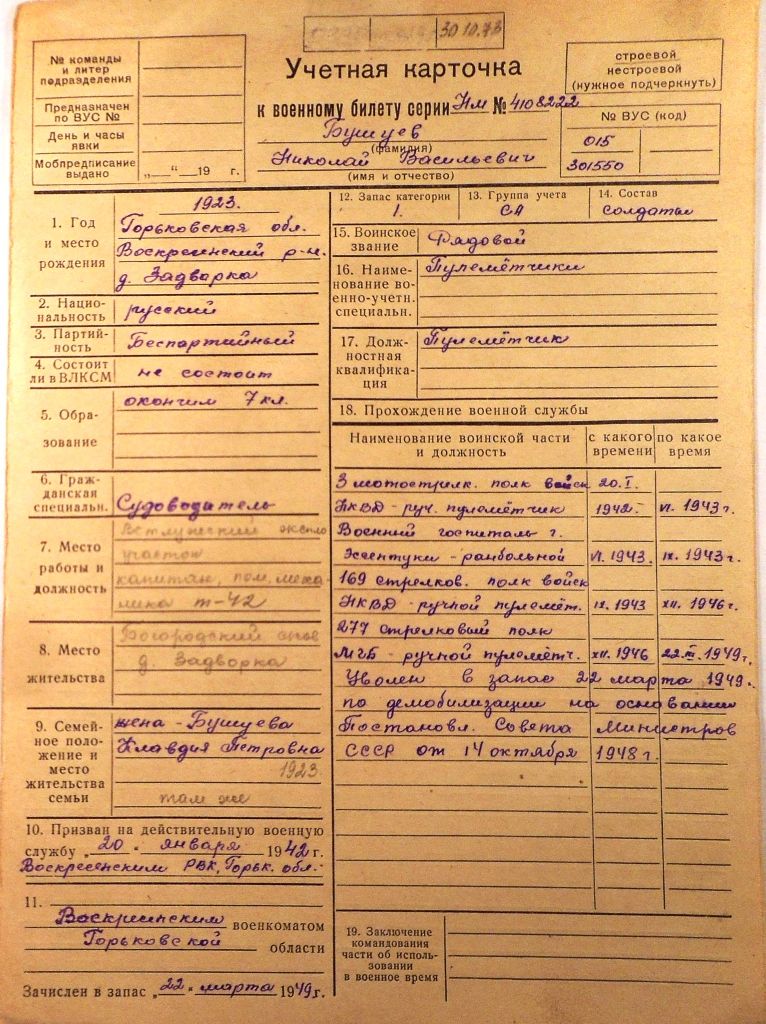 30 10.73
№ команды
и литер
подразделения
Предназначен
по ВУС №
День и часы
явки
Мобпредписание
выдано
„ “ 19 г.
Учетная карточка
к военному билету серии Нм № 4108222
Бушуев
(фамилия)
Николай Васильевич
(имя и отчество)
строевой
нестроевой
(нужное подчеркнуть)
№ ВУС (код)
015
301550
1. Год
и место
рождения
1923.
Горьковская обл.
Воскресенский р-н.
д. Задворка
2. Нацио-
нальность
русский
3. Партий-
ность
Беспартийный
4. Состоит
ли в ВЛКСМ
не состоит
5. Обра-
зование
окончил 7 кл.
6. Граж-
данская
специальн.
Судоводитель
7. Место
работы и
должность
Ветлужский экспло
участок
капитан, пом. меха-
ника т-42
8. Место
жительства
Богородский с/сов
д. Задворка
9. Семей-
ное поло-
жение и
место
жительства
семьи
жена - Бушуева
Клавдия Петровна
1923.
там же
10. Призван на действительную военную
службу „20“ января 1942 г.
Воскресенским РВК, Горьк. обл.
11.
Воскресенским военкоматом
Горьковской области
Зачислен в запас „22“ марта 1949 г.
12. Запас категории
1.
13. Группа учета
СА
14. Состав
солдаты
15. Воинское
звание
Рядовой
16. Наиме-
нование во-
енно-учетн.
специальн.
Пулемётчики
17. Долж-
ностная
квалифика-
ция
Пулемётчик
18. Прохождение военной службы
Наименование воинской части
и должность
с какого
времени
по какое
время
3 мотострелк. полк войск 20.I.
НКВД - руч. пулемётчик 1942. VI. 1943 г.
Военный госпиталь г.
Эссентуки - ранбольной VI. 1943. IX. 1943 г.
169 стрелков. полк войск
НКВД - ручной пулемёт. IX. 1943 XII. 1946 г.
277 стрелковый полк
МГБ - ручной пулемётч. XII. 1946 22.III. 1949 г.
Уволен в запас 22 марта 1949.
по демобилизации на основании
Постановл. Совета Министров
СССР от 14 октября 1948 г.
19. Заключение
командования
части об исполь-
зовании
в военное время